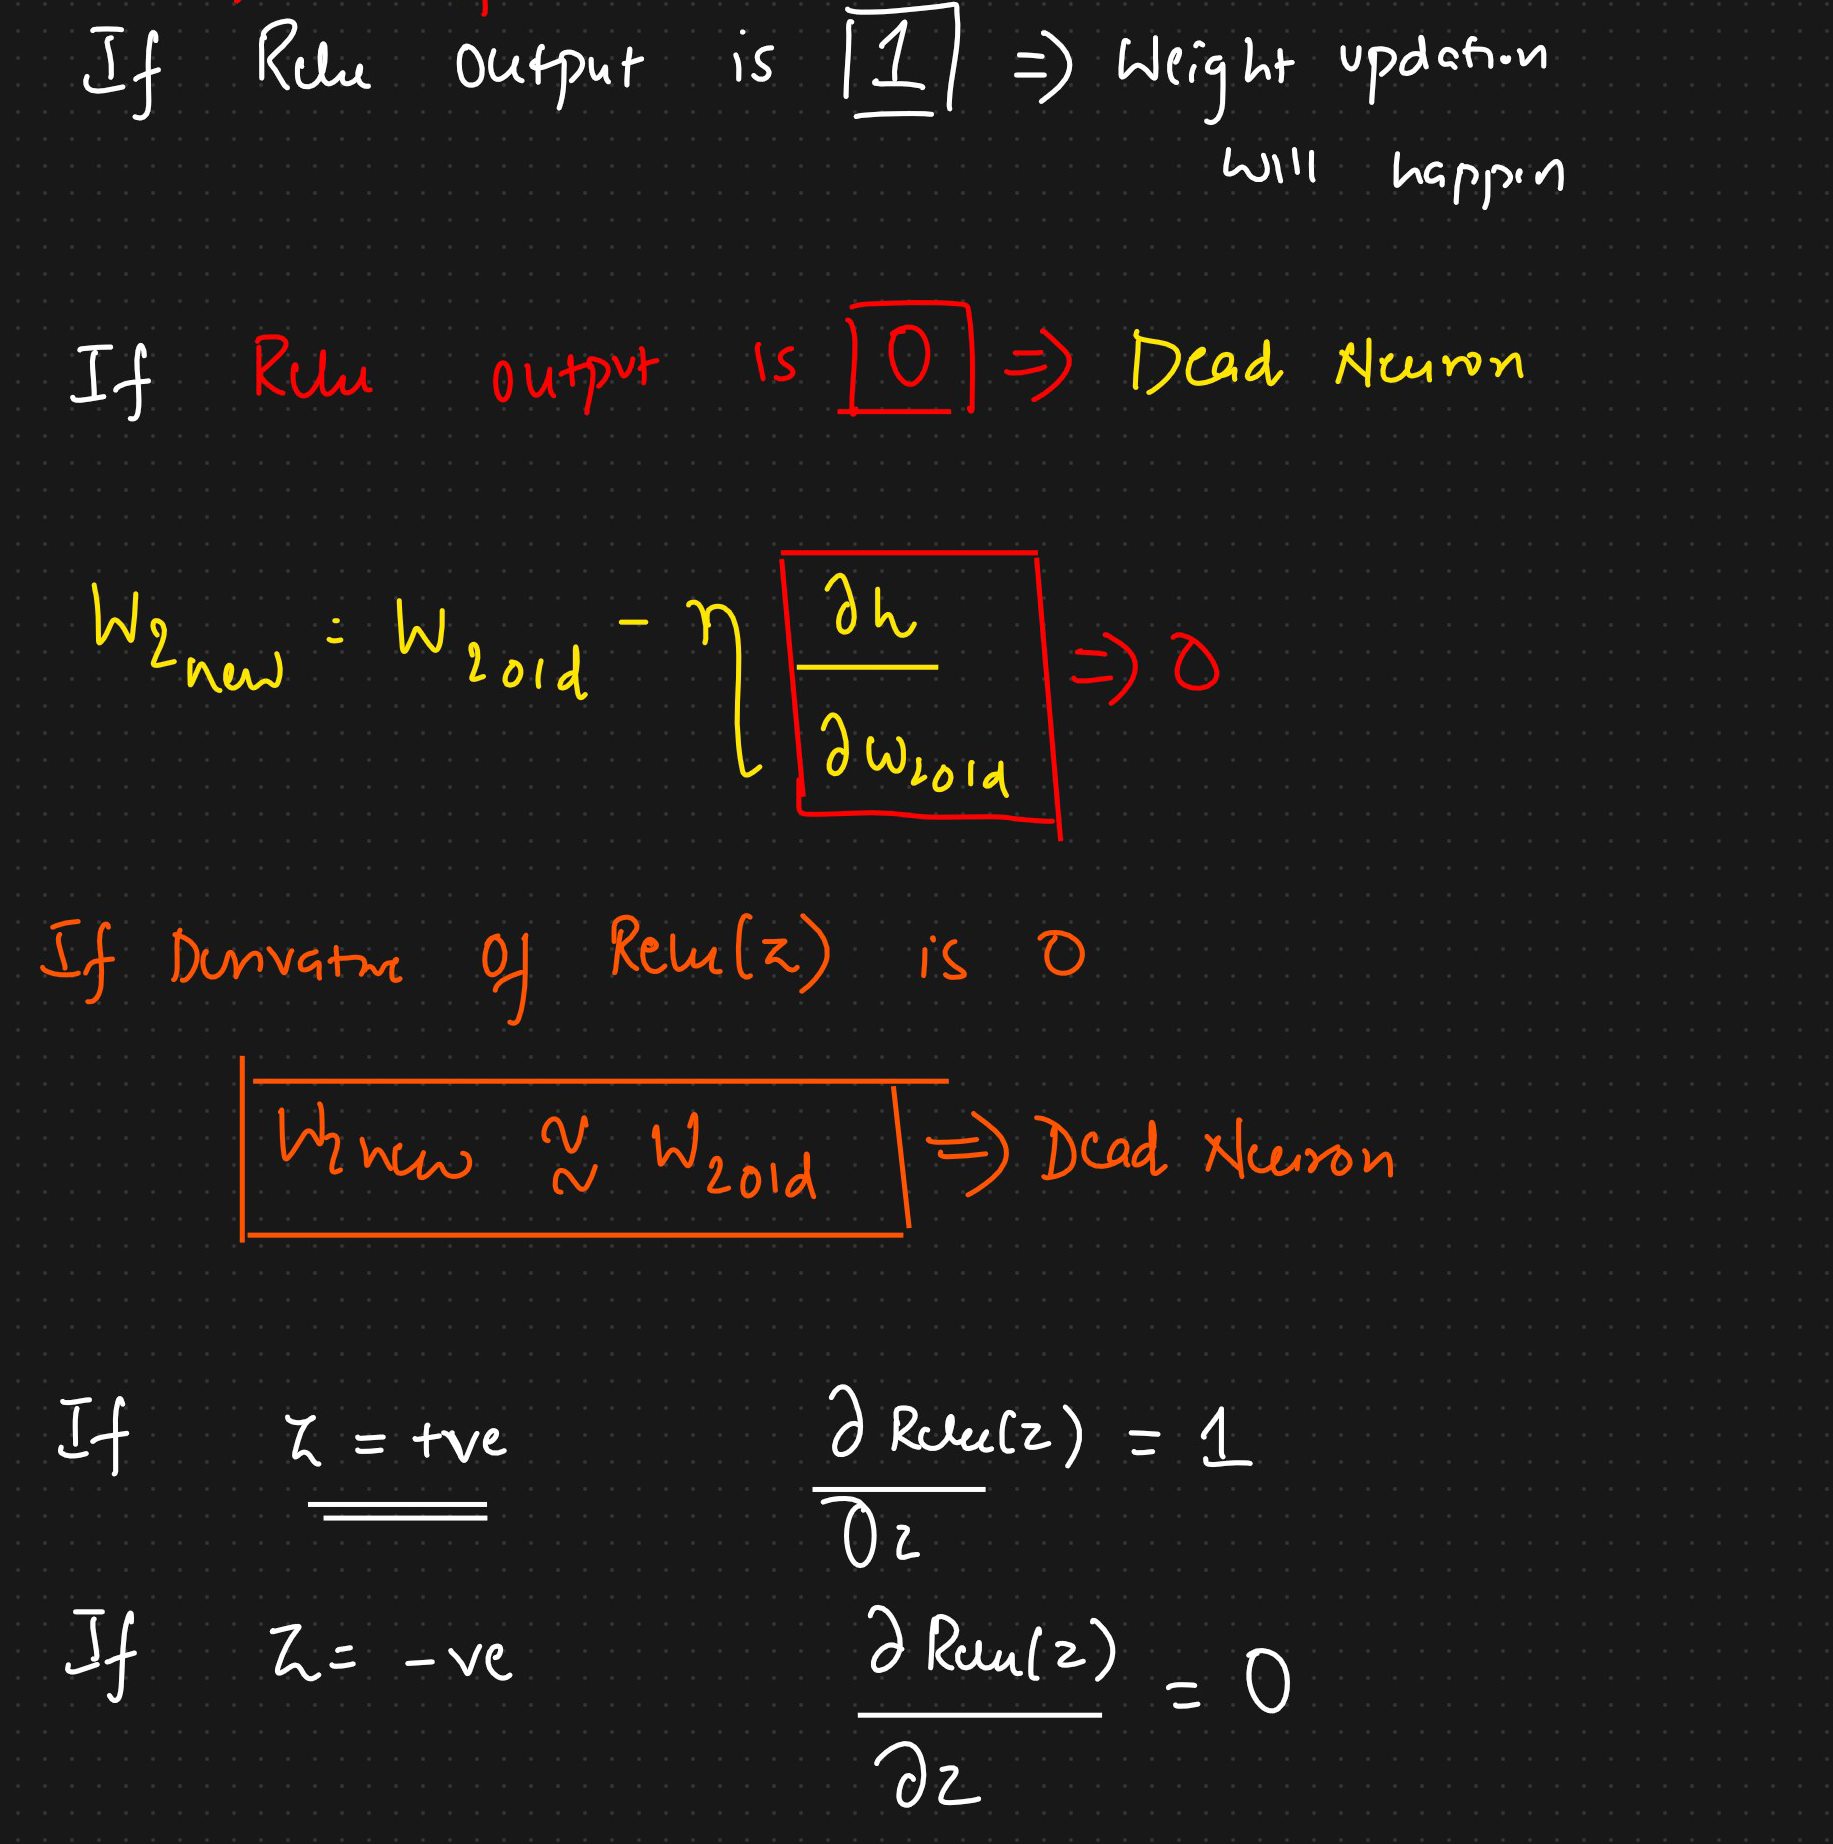 If Relu output is 1 => Weight updation
will happen
If Relu output is 0 => Dead Neuron
W2new = W2old - η ∂h/∂w2old => 0
If Derivative of Relu(z) is 0
W2new ≈ W2old => Dead Neuron
If Z = +ve ∂Relu(z)/∂z = 1
If Z = -ve ∂Relu(z)/∂z = 0